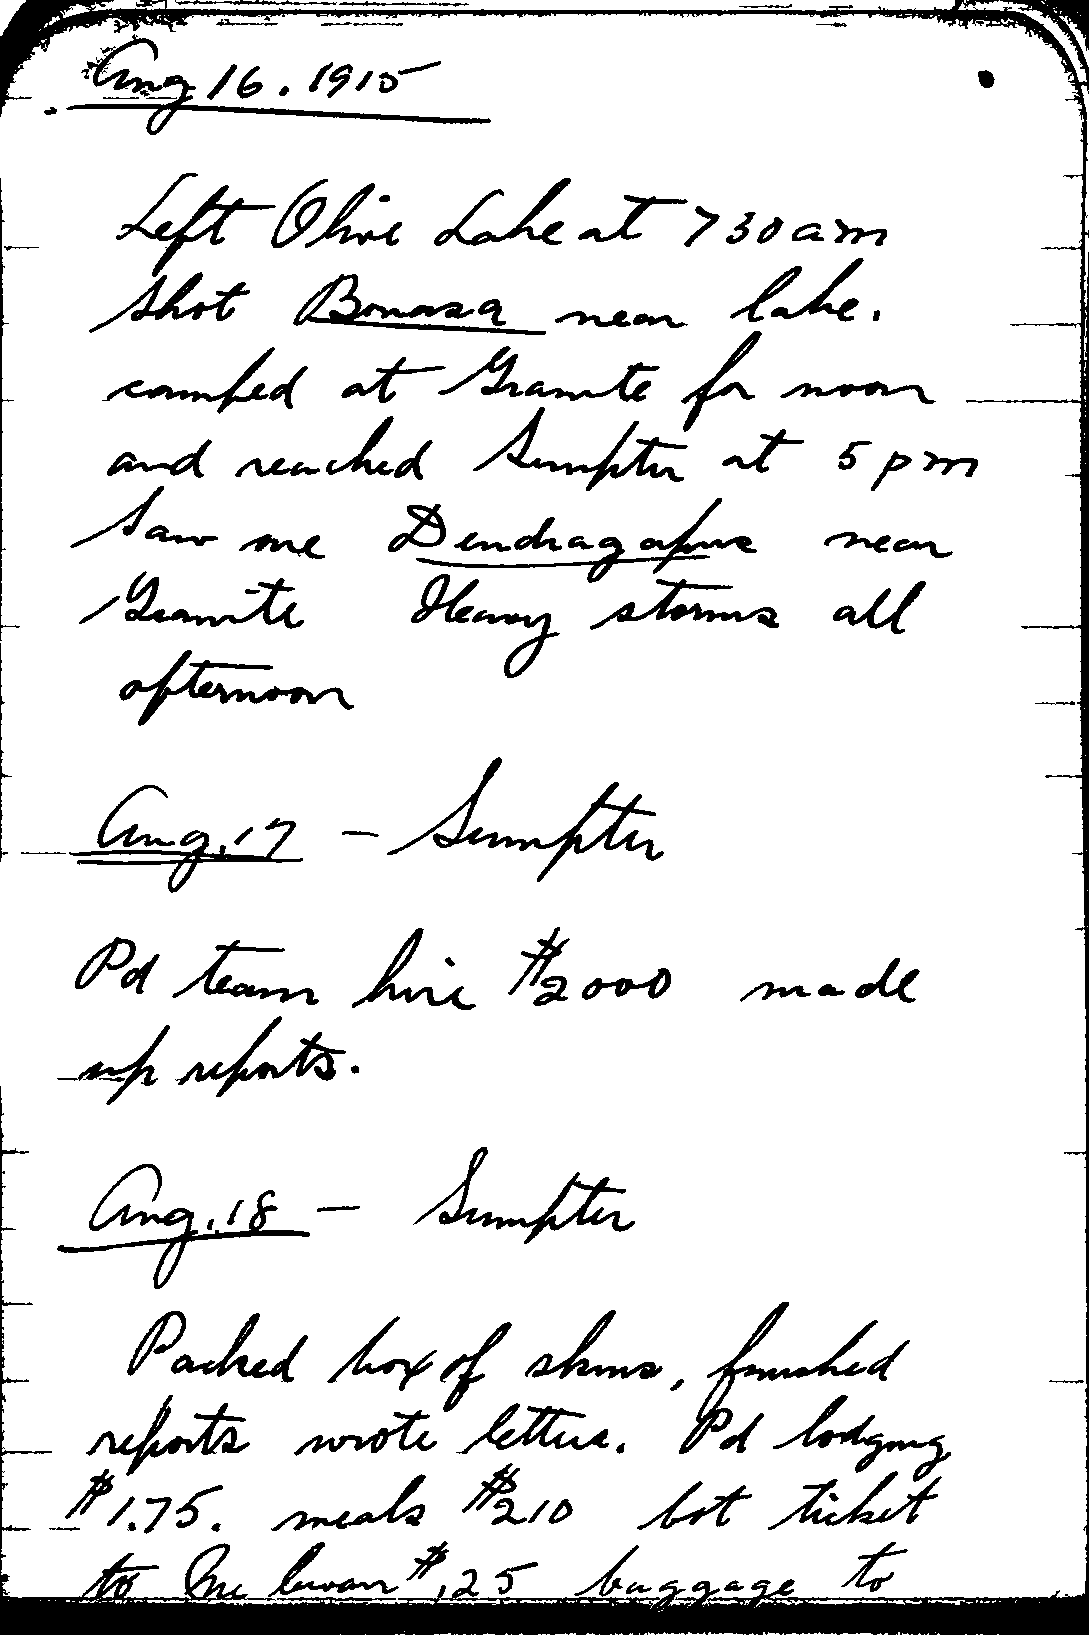 Aug 16. 1915
Left Olive Lake at 7 30 am
Shot Bonasa near lake.
camped at Granite for noon
and reached Sumpter at 5 pm
Saw one Dendragapus near
Granite Heavy storms all
afternoon
Aug. 17 — Sumpter
Pd team hire $2000 made
up reports.
Aug. 18 — Sumpter
Packed box of skins, finished
reports wrote letters. Pd lodging
$1.75. meals $210 bot ticket
to McEwan $.25 baggage to